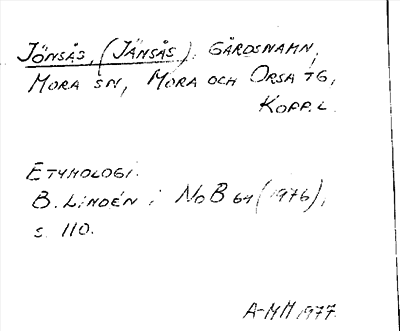 JÖNSÅS, (JÄNSÅS), GÅRDSNAMN,
MORA SN, MORA OCH ORSA TG,
KOPP.L.
ETYMOLOGI:
B. LINDÉN i NoB 64 (1976),
s. 110.
A-MH 1977.